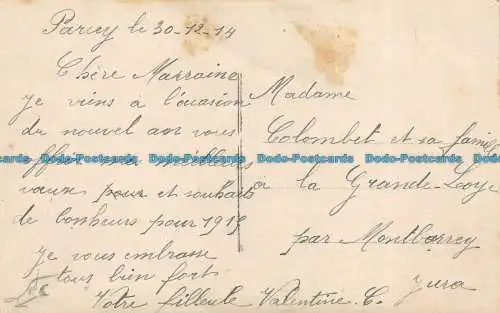 Parcey le 30-12-14
Chère Marraine
je viens à l'occasion
du nouvel an vous
offrir mes meilleurs
vœux pour et souhaits
de bonheurs pour 1915
je vous embrasse
tous bien fort
Votre filleule Valentine. C.
Madame
Colombet et sa famille
à la Grande-Loye
par Montbarrey
Jura
Dodo-Postcards Dodo-Postcards Dodo-Postcards Dodo-Postcards Dodo-Postcards